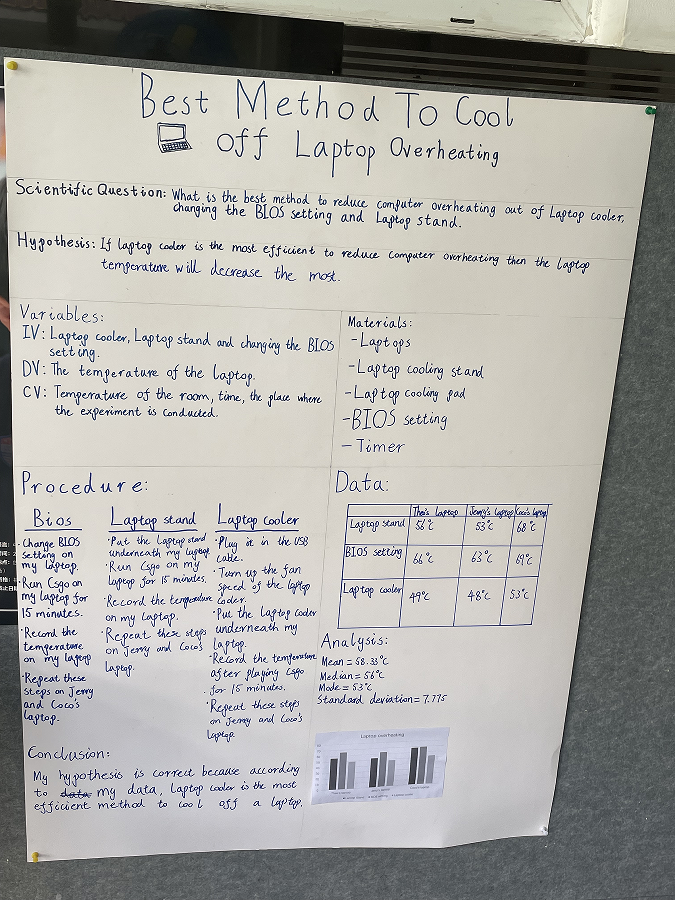 Best Method To Cool
off Laptop Overheating
Scientific Question: What is the best method to reduce computer overheating out of Laptop cooler,
changing the BIOS setting and Laptop stand.
Hypothesis: If laptop cooler is the most efficient to reduce computer overheating then the laptop
temperature will decrease the most.
Variables:
IV: Laptop cooler, Laptop stand and changing the BIOS
setting.
DV: The temperature of the laptop.
CV: Temperature of the room, time, the place where
the experiment is conducted.
Materials:
- Laptops
- Laptop cooling stand
- Laptop cooling pad
- BIOS setting
- Timer
Procedure:
Bios
· Change BIOS
setting on
my laptop.
· Run Csgo on
my laptop for
15 minutes.
· Record the
temperature
on my laptop
· Repeat these
steps on Jerry
and Coco's
laptop.
Laptop stand
· Put the Laptop stand
underneath my laptop
· Run Csgo on my
laptop for 15 minutes.
· Record the temperature
on my laptop.
· Repeat these steps
on Jerry and Coco's
laptop.
Laptop cooler
· Plug it in the USB
cable.
· Turn up the fan
speed of the laptop
cooler.
· Put the Laptop cooler
underneath my
laptop.
· Record the temperature
after playing Csgo
for 15 minutes.
· Repeat these steps
on Jerry and Coco's
laptop.
Data:
Laptop Jerry's laptop Coco's laptop
Laptop stand 56°C 53°C 68°C
BIOS setting 66°C 63°C 69°C
Laptop cooler 49°C 48°C 53°C
Analysis:
Mean = 58.33°C
Median = 56°C
Mode = 53°C
Standard deviation = 7.775
Laptop overheating
Conclusion:
My hypothesis is correct because according
to data my data, Laptop cooler is the most
efficient method to cool off a laptop.